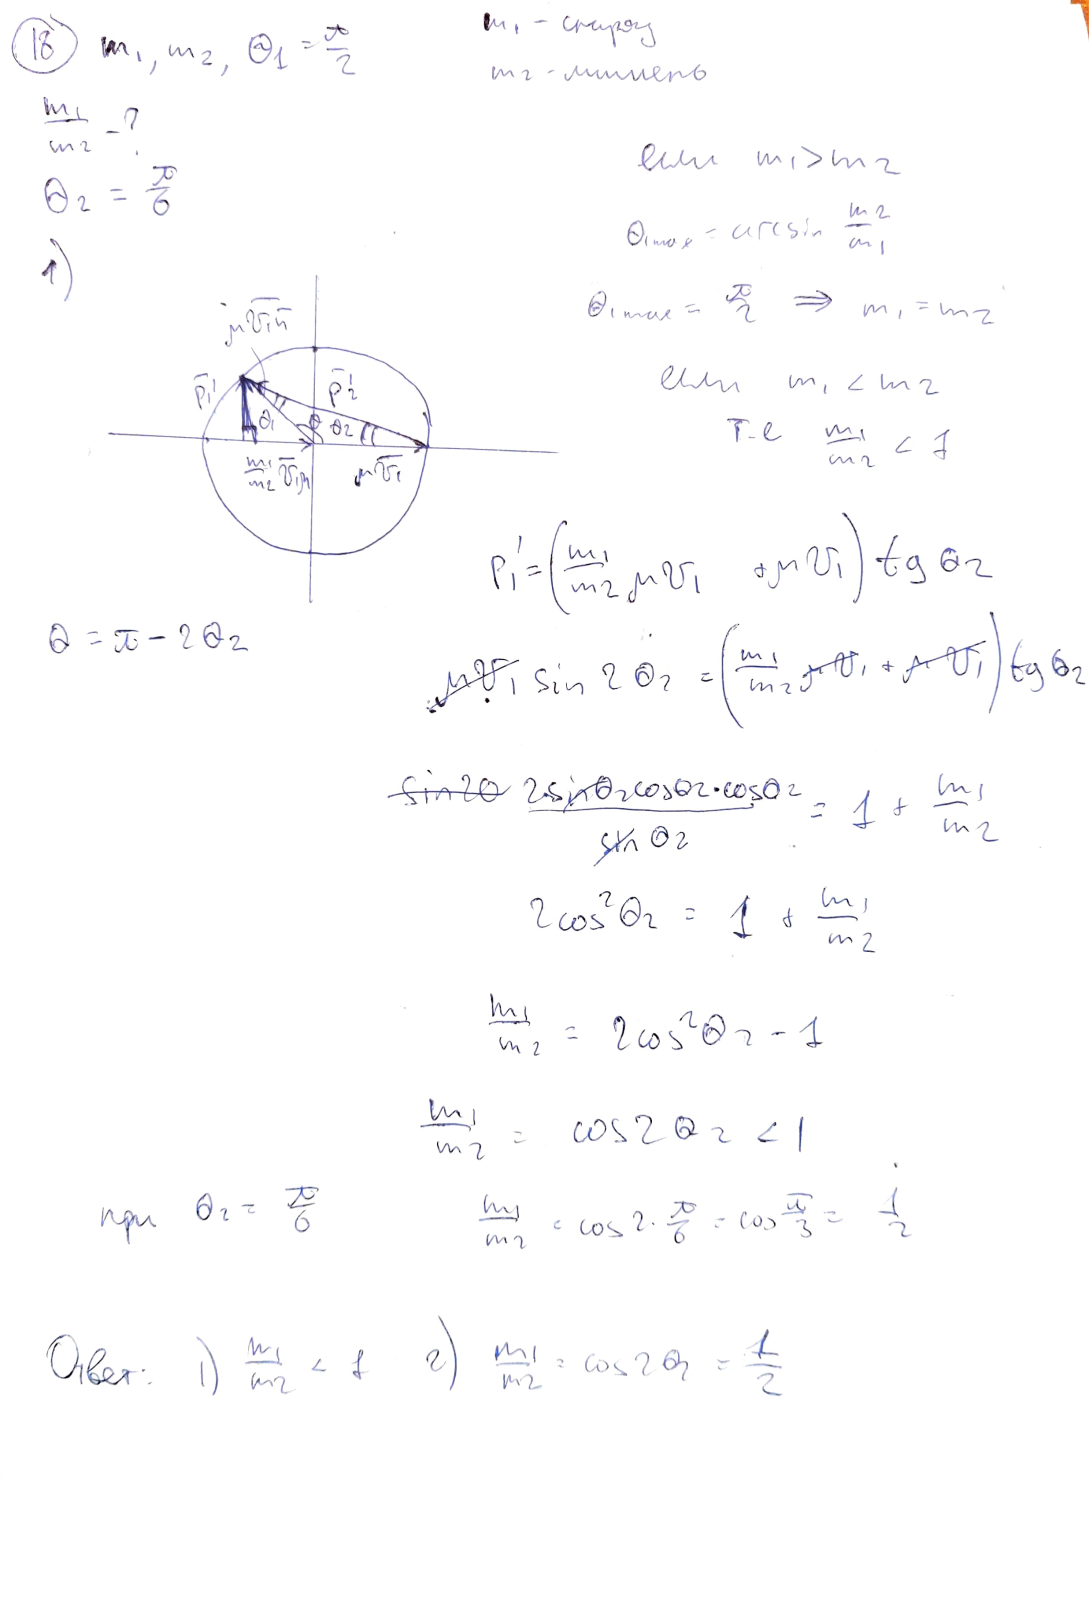 18 m₁, m₂, θ₁ = π/2
m₁ - снаряд
m₂ - мишень
m₁/m₂ - ?
θ₂ = π/6
если m₁ > m₂
θ₁max = arcsin m₂/m₁
θ₁max = π/2 ⇒ m₁ = m₂
если m₁ < m₂
т.е m₁/m₂ < 1
1)
μv̄₁n̄
p̄₁' p̄₂'
θ₁ θ θ₂
m₁/m₂ v̄₁μ μv̄₁
p₁' = (m₁/m₂ μv₁ + μv₁) tg θ₂
θ = π - 2θ₂
μv₁ sin 2θ₂ = (m₁/m₂ μv₁ + μv₁) tg θ₂
sin2θ 2sinθ₂cosθ₂·cosθ₂ / sin θ₂ = 1 + m₁/m₂
2cos²θ₂ = 1 + m₁/m₂
m₁/m₂ = 2cos²θ₂ - 1
m₁/m₂ = cos2θ₂ < 1
при θ₂ = π/6 m₁/m₂ = cos2·π/6 = cos π/3 = 1/2
Ответ: 1) m₁/m₂ < 1 2) m₁/m₂ = cos2θ₂ = 1/2